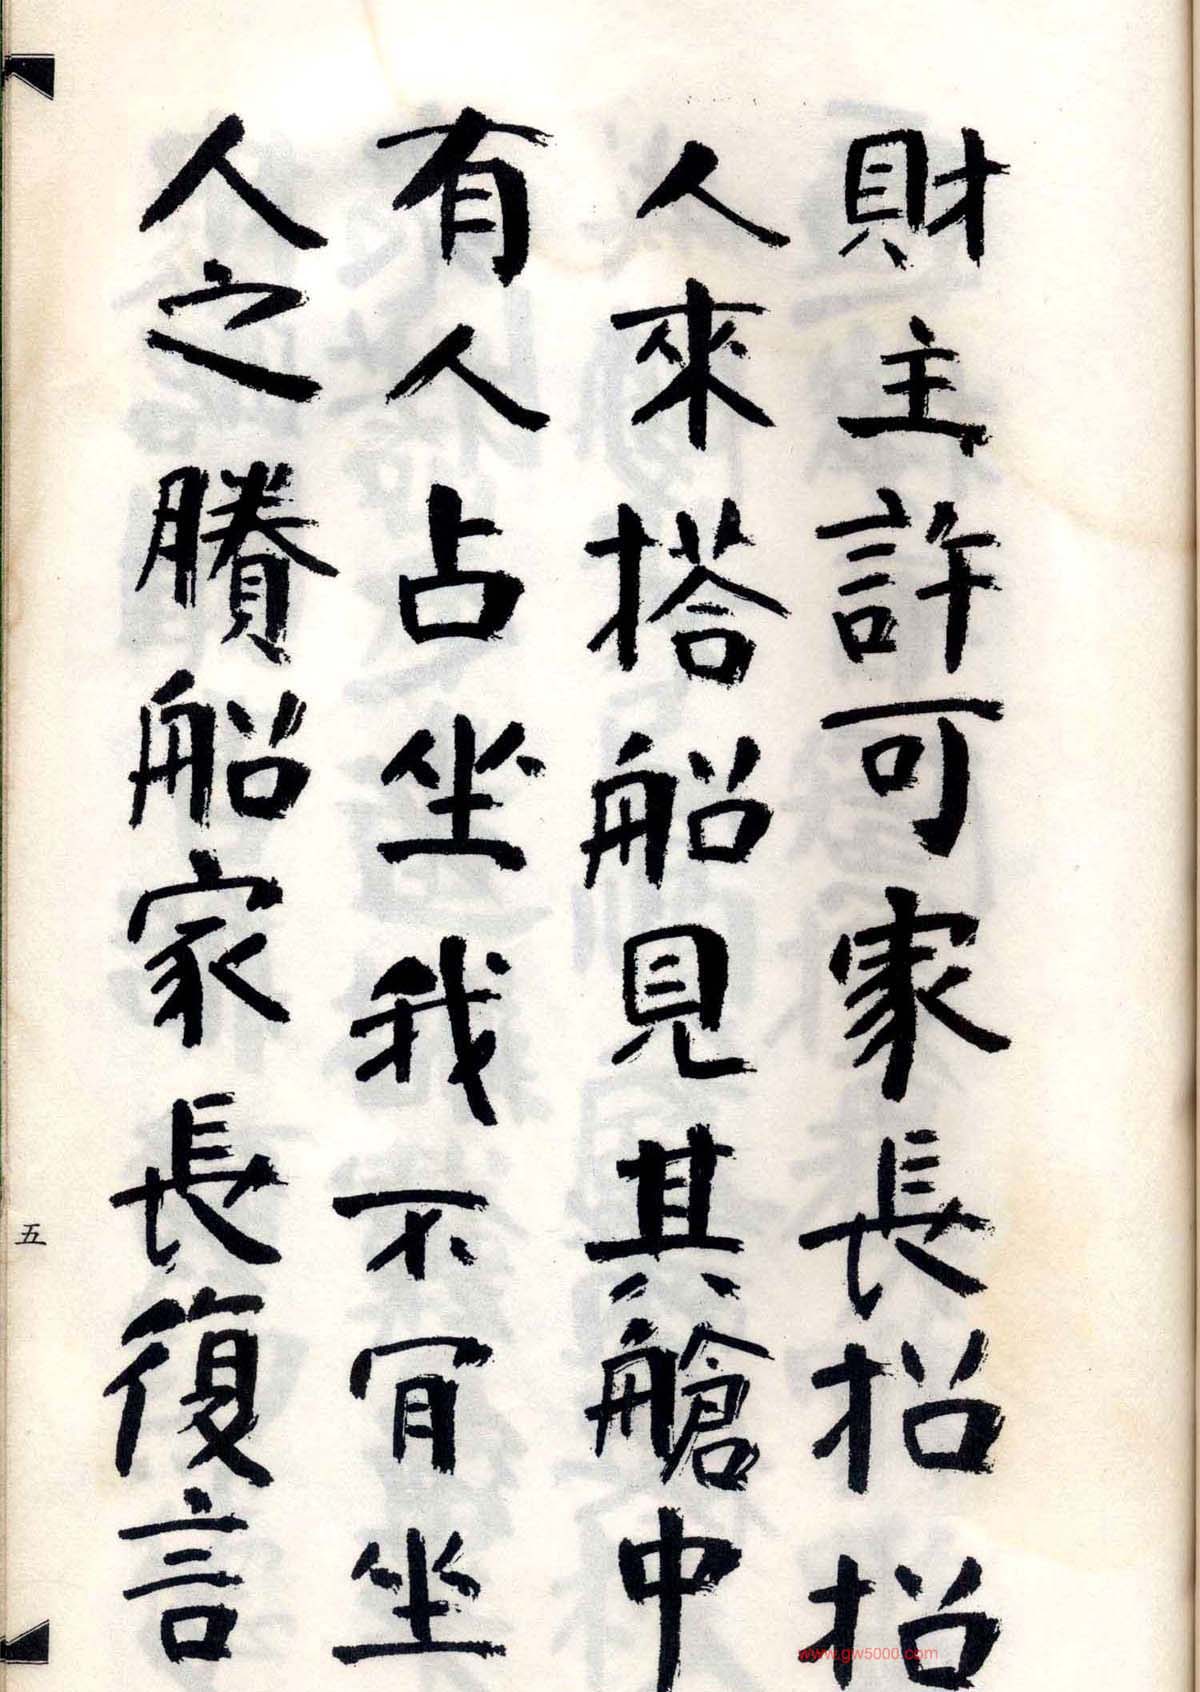 財主許可家長招招
人來搭船見其艙中
有人占坐我不肯坐
人之賸船家長復言
五
www.gw5000.com